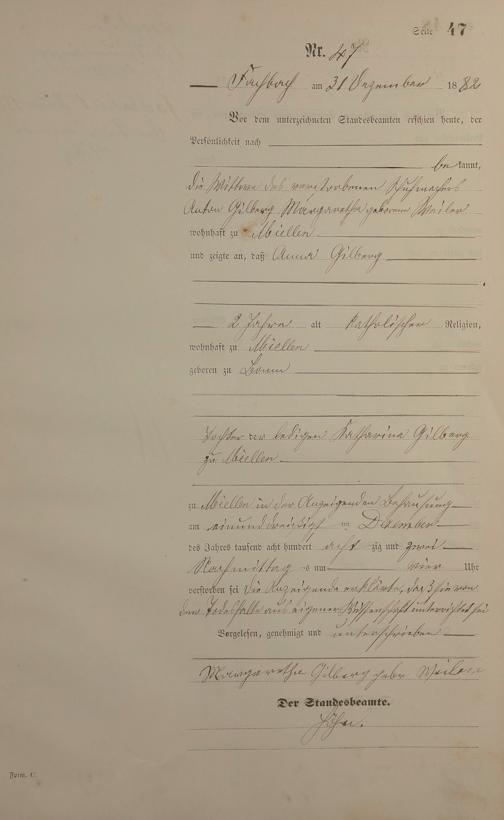 Seite 47
Nr. 47
Fachbach am 31 Dezember 1882
Vor dem unterzeichneten Standesbeamten erschien heute, der
Persönlichkeit nach
bekannt,
die Wittwe des verstorbenen Schuhmachers
Anton Gilberg Margaretha geborene Weiler
wohnhaft zu Miellen
und zeigte an, daß Anna Gilberg
2 Jahre alt katholischer Religion,
wohnhaft zu Miellen
geboren zu Bonn
Tochter der ledigen Katharina Gilberg
zu Miellen
zu Miellen in der Anzeigenden Behausung
am einunddreißigt en Dezember
des Jahres tausend acht hundert acht zig und zwei
Nachmittag s um vier Uhr
verstorben sei Die Anzeigende erklärte, daß sie von
dem Todesfalle aus eigener Wissenschaft unterrichtet sei
Vorgelesen, genehmigt und unterschrieben
Margaretha Gilberg gebr Weiler
Der Standesbeamte.
Form. C.